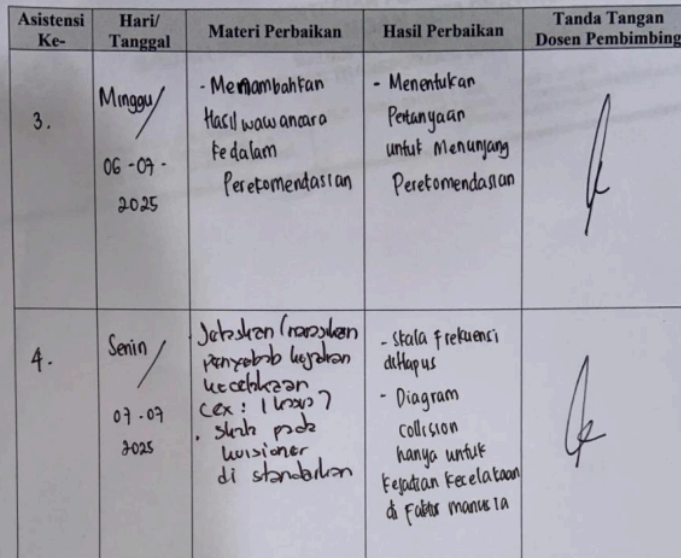 Asistensi Ke-
Hari/ Tanggal
Materi Perbaikan
Hasil Perbaikan
Tanda Tangan Dosen Pembimbing
3.
Minggu/
06-07-
2025
- Menambahkan
Hasil wawancara
kedalam
Perekomendasian
- Menentukan
Pertanyaan
untuk Menunjang
Perekomendasian
4.
Senin/
07-07
2025
Jelaskan (narasikan
penyebab kejadian
kecelakaan
(ex: 1
. skala pada
kuisioner
di standarkan
- Skala Frekuensi
diHapus
- Diagram
collision
hanya untuk
kejadian kecelakaan
di Faktor manusia